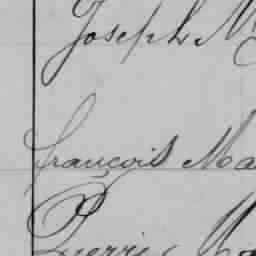 Joseph M
François Ma
Pierre Ma